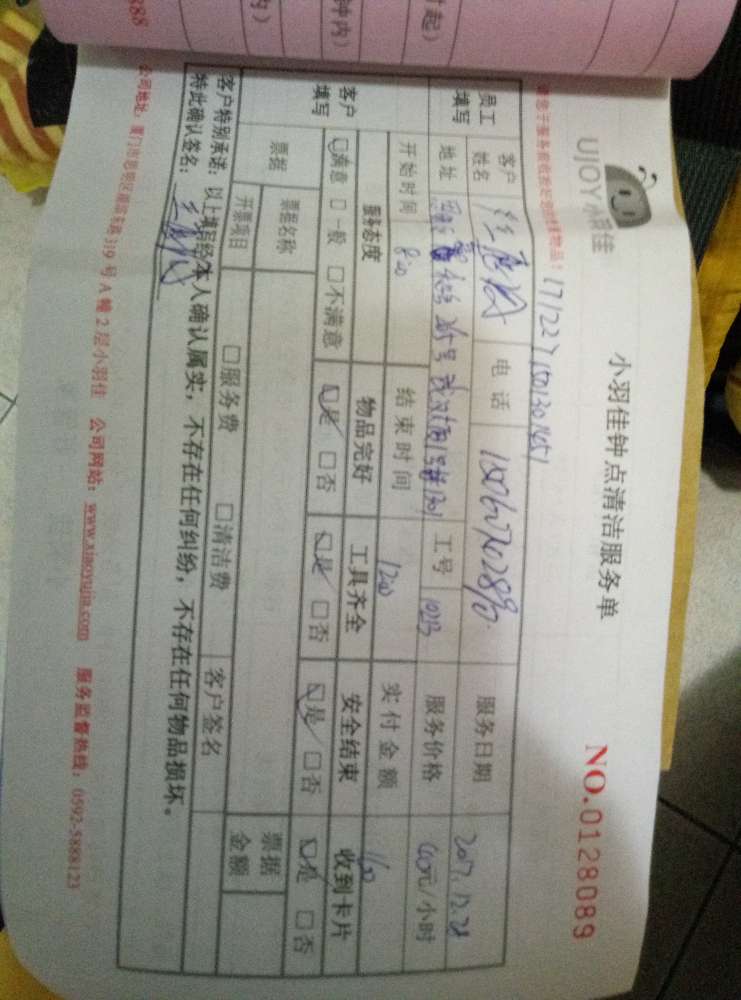 888
钟内）
内）
时起）
UJOY小羽佳
小羽佳钟点清洁服务单
NO.0128089
员工填写
客户姓名
电话
服务日期
2017.12.28
地址
工号
10213
服务价格
40元/小时
开始时间
800
结束时间
1200
实付金额
160
客户填写
服务态度
物品完好
工具齐全
安全结束
收到卡片
☑满意 □一般 □不满意
☑是 □否
☑是 □否
☑是 □否
☑是 □否
票据
票据名称
票据金额
开票项目
□服务费 □清洁费
客户签名
客户特别承诺：以上填写经本人确认属实，不存在任何纠纷，不存在任何物品损坏。
特此确认签名：
公司地址：厦门市思明区湖滨东路319号A幢2层小羽佳 公司网站：www.xiaoyujia.com 服务监督热线：0592-5888123